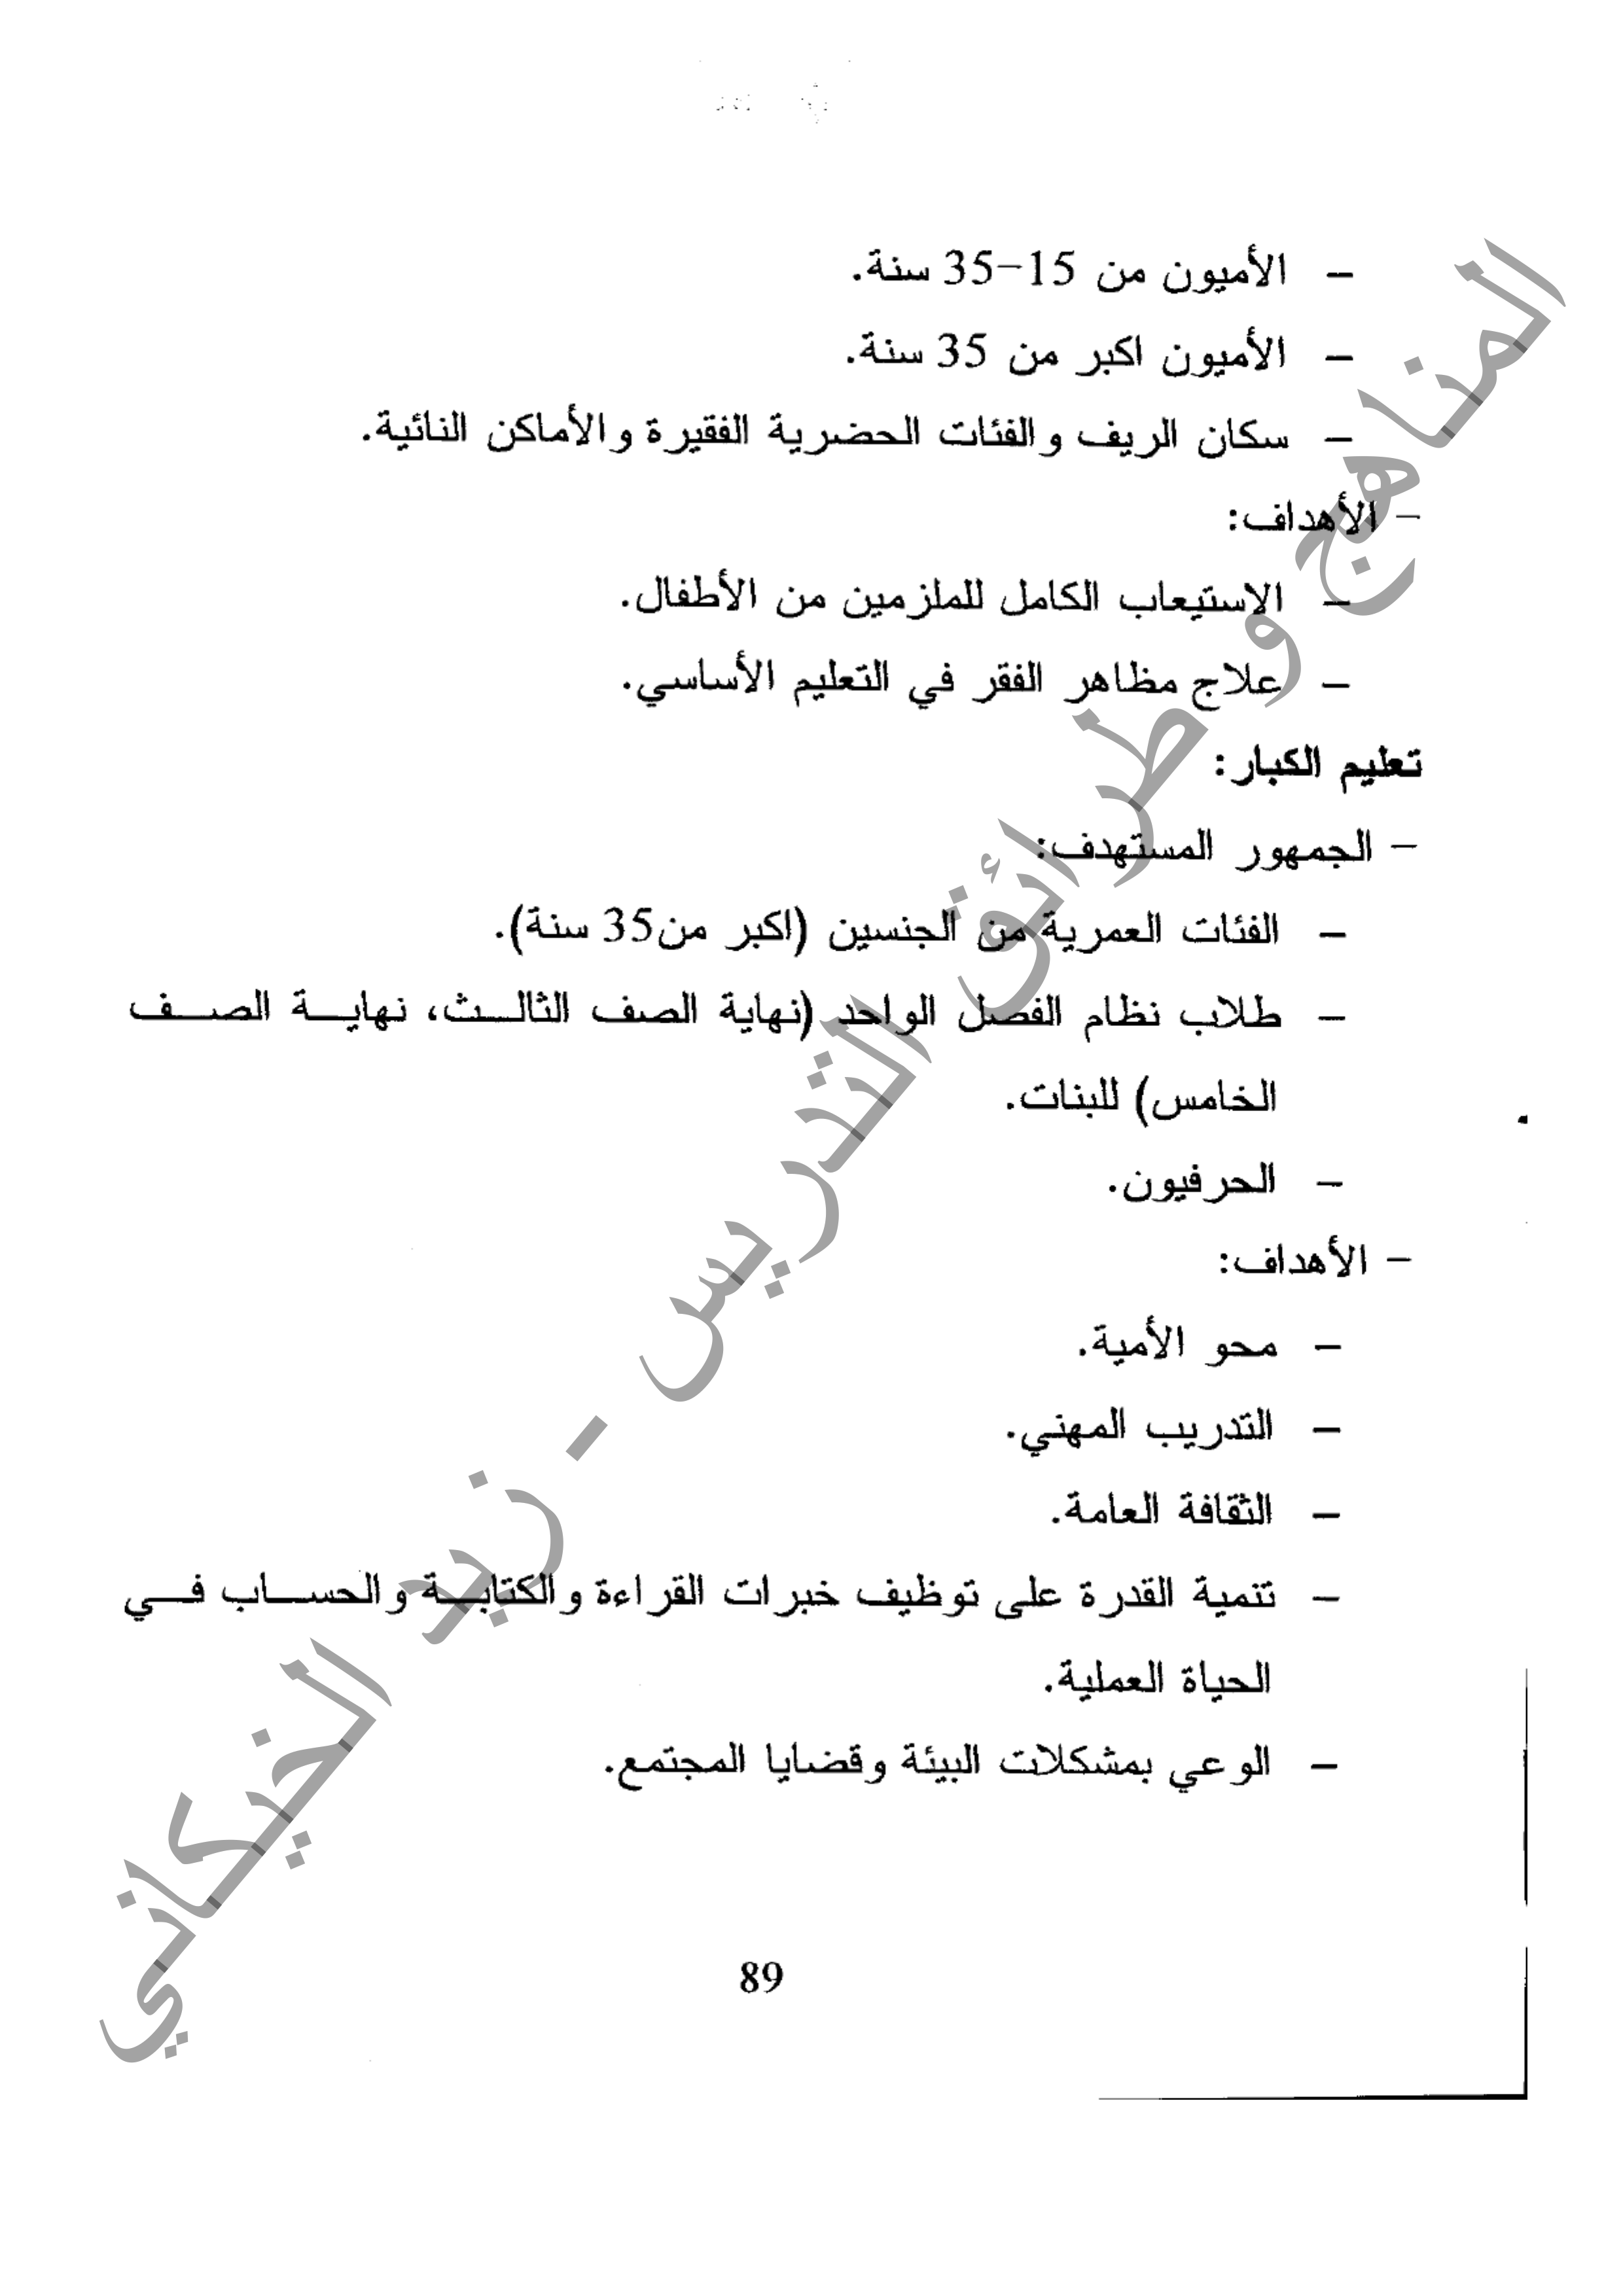 – الأميون من 15–35 سنة.
– الأميون اكبر من 35 سنة.
– سكان الريف والفئات الحضرية الفقيرة والأماكن النائية.
– الأهداف:
– الإستيعاب الكامل للملزمين من الأطفال.
– علاج مظاهر الفقر في التعليم الأساسي.
تعليم الكبار:
– الجمهور المستهدف:
– الفئات العمرية من الجنسين (اكبر من35 سنة).
– طلاب نظام الفصل الواحد (نهاية الصف الثالـــث، نهايـــة الصـــف
الخامس) للبنات.
– الحرفيون.
– الأهداف:
– محو الأمية.
– التدريب المهني.
– الثقافة العامة.
– تنمية القدرة على توظيف خبرات القراءة والكتابـــة والحســـاب فـــي
الحياة العملية.
– الوعي بمشكلات البيئة وقضايا المجتمع.
89
المناهج وطرائق التدريس - زيد الخيكاني